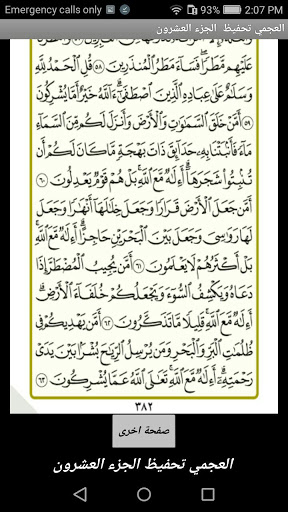 Emergency calls only 2:07 PM
العجمي تحفيظ الجزء العشرون
عَلَيْهِم مَّطَرًا فَسَاءَ مَطَرُ الْمُنذَرِينَ ٥٨ قُلِ الْحَمْدُ لِلَّهِ
وَسَلَامٌ عَلَى عِبَادِهِ الَّذِينَ اصْطَفَى ءَاللَّهُ خَيْرٌ أَمَّا يُشْرِكُونَ
٥٩ أَمَّنْ خَلَقَ السَّمَاوَاتِ وَالْأَرْضَ وَأَنزَلَ لَكُم مِّنَ السَّمَاءِ
مَاءً فَأَنبَتْنَا بِهِ حَدَائِقَ ذَاتَ بَهْجَةٍ مَّا كَانَ لَكُمْ أَن
تُنبِتُوا شَجَرَهَا أَءِلَهٌ مَّعَ اللَّهِ بَلْ هُمْ قَوْمٌ يَعْدِلُونَ
٦٠ أَمَّن جَعَلَ الْأَرْضَ قَرَارًا وَجَعَلَ خِلَالَهَا أَنْهَارًا وَجَعَلَ
لَهَا رَوَاسِيَ وَجَعَلَ بَيْنَ الْبَحْرَيْنِ حَاجِزًا أَءِلَهٌ مَّعَ اللَّهِ
بَلْ أَكْثَرُهُمْ لَا يَعْلَمُونَ ٦١ أَمَّن يُجِيبُ الْمُضْطَرَّ إِذَا
دَعَاهُ وَيَكْشِفُ السُّوءَ وَيَجْعَلُكُمْ خُلَفَاءَ الْأَرْضِ
أَءِلَهٌ مَّعَ اللَّهِ قَلِيلًا مَّا تَذَكَّرُونَ ٦٢ أَمَّن يَهْدِيكُمْ فِي
ظُلُمَاتِ الْبَرِّ وَالْبَحْرِ وَمَن يُرْسِلُ الرِّيَاحَ بُشْرًا بَيْنَ يَدَيْ
رَحْمَتِهِ أَءِلَهٌ مَّعَ اللَّهِ تَعَالَى اللَّهُ عَمَّا يُشْرِكُونَ ٦٣
٣٨٢
صفحة اخرى
العجمي تحفيظ الجزء العشرون